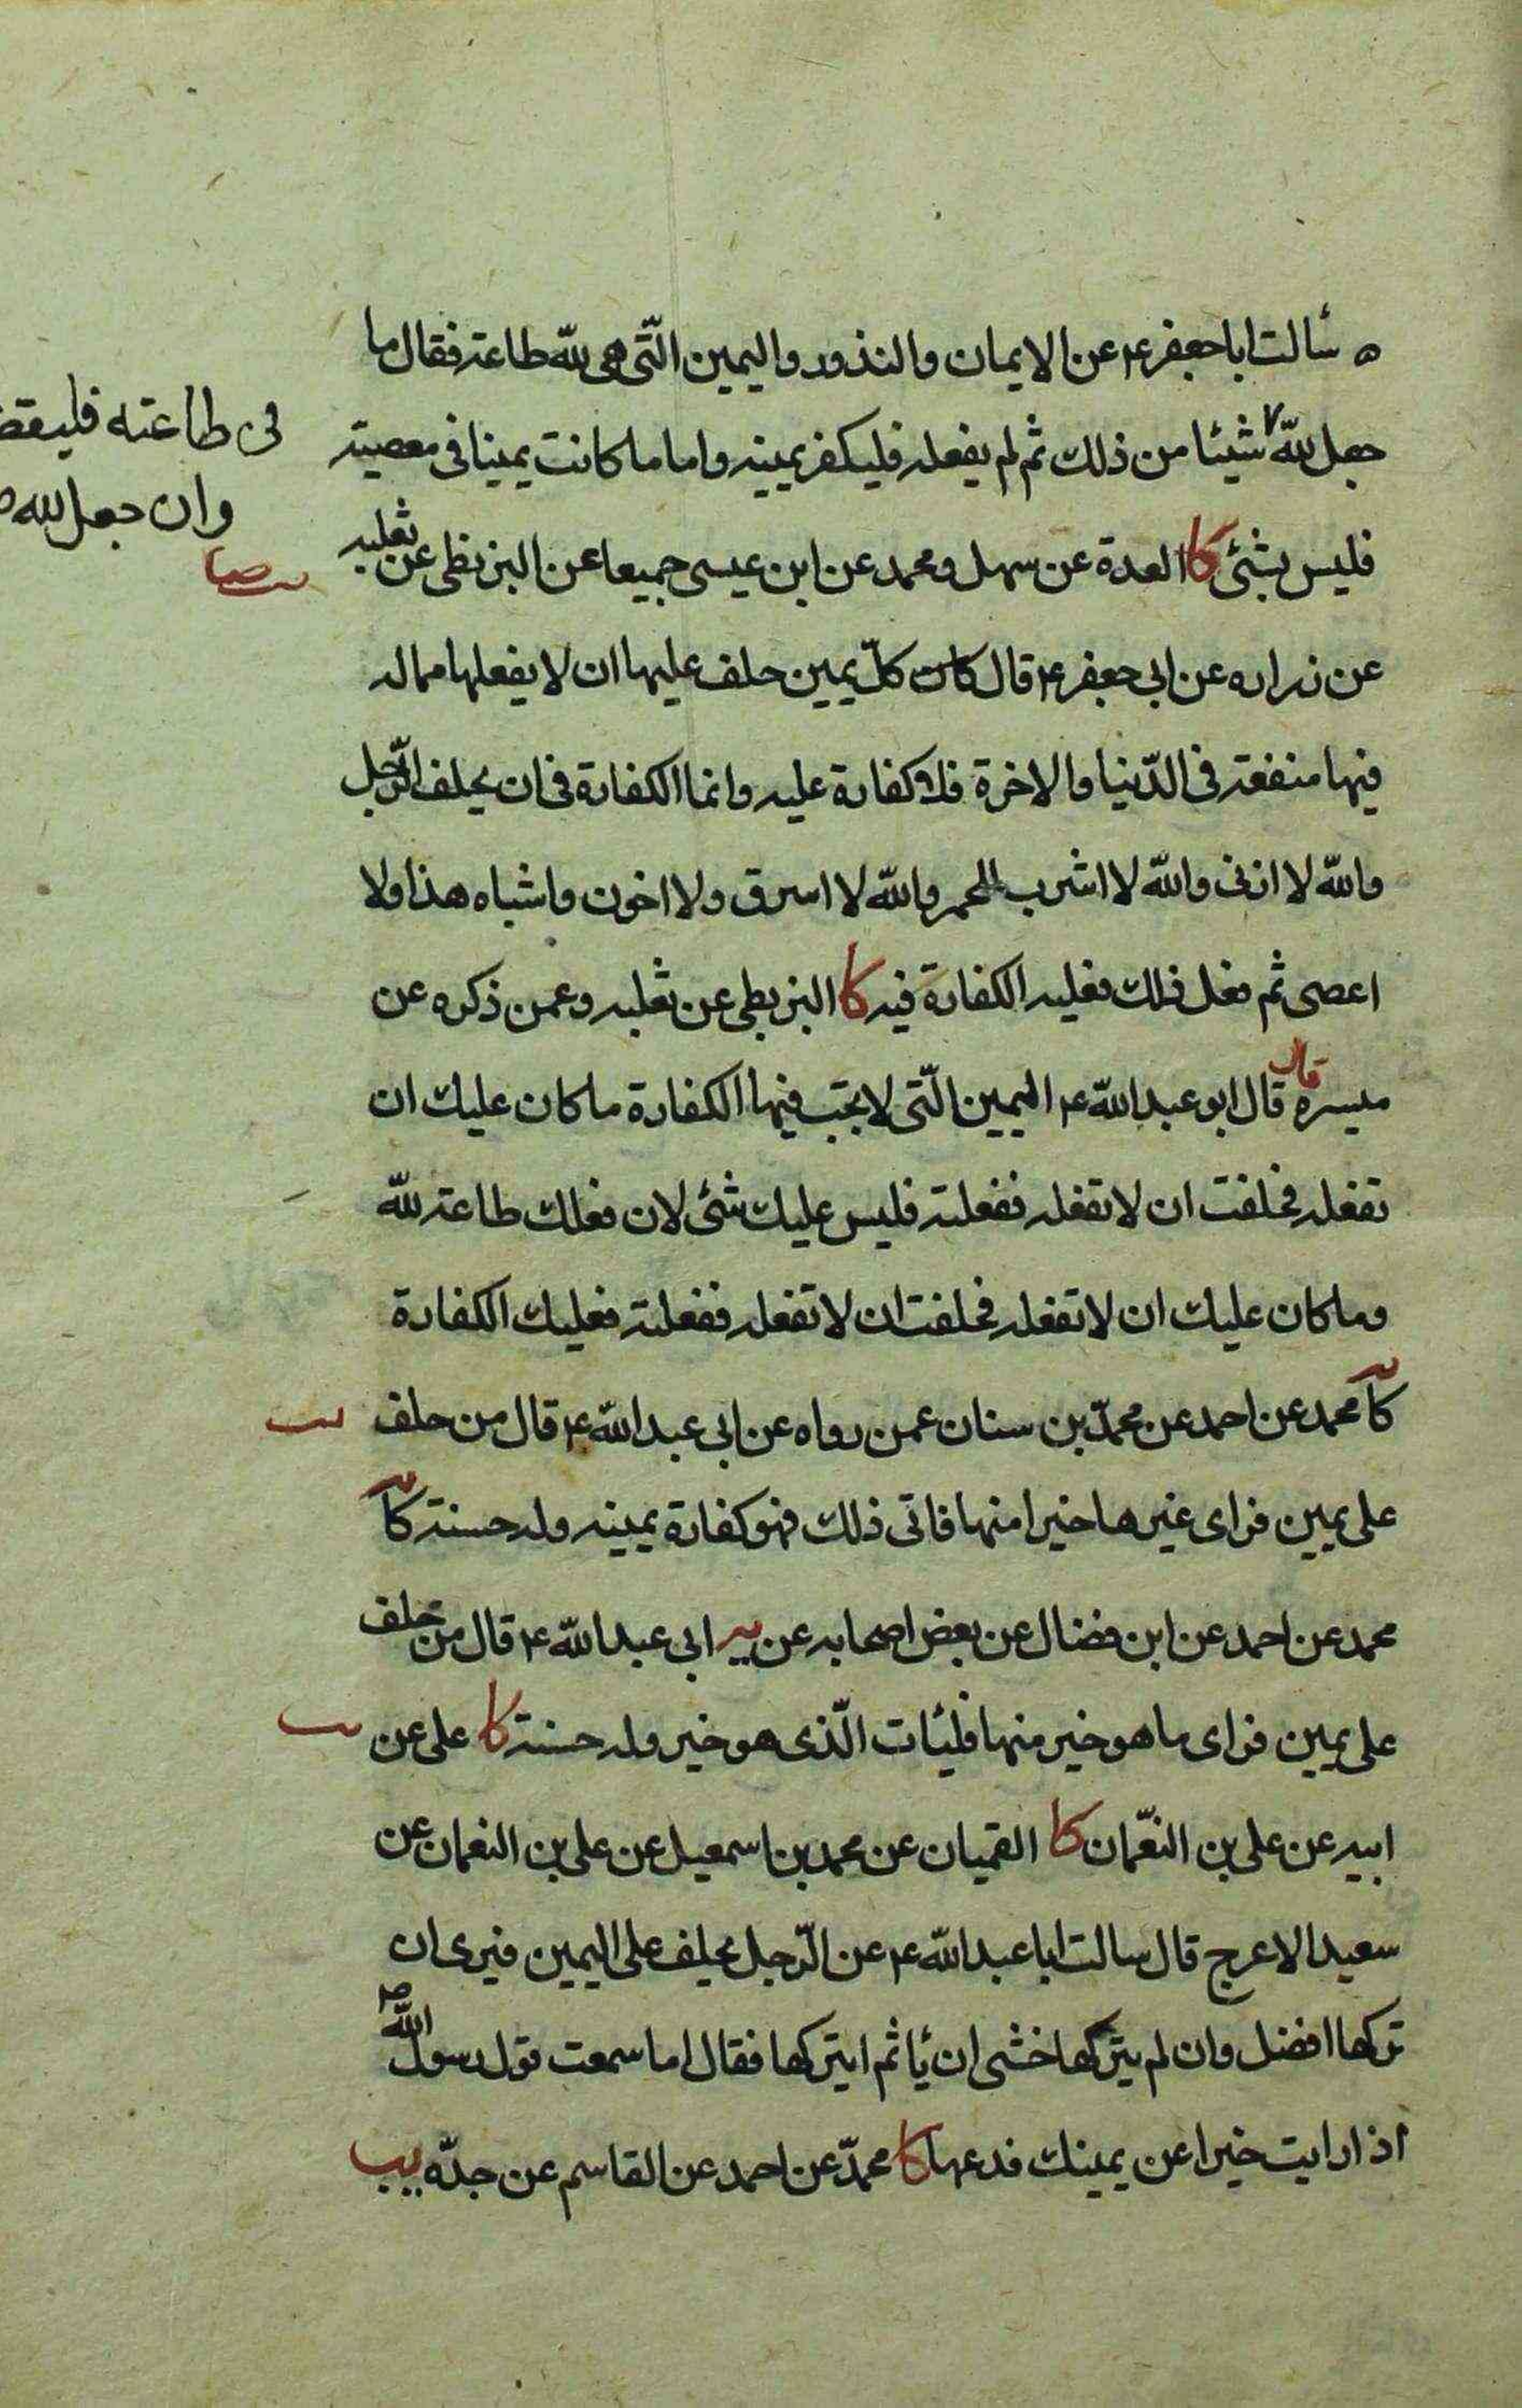 ه سألت ابا جعفر ع عن الايمان والنذور واليمين الّتى هى للّه طاعة فقال ما
جعل للّه شيئا من ذلك ثم لم يفعله فليكفر يمينه واما ما كانت يمينا فى معصية
فى طاعته فليقض
وان جعل لله
فليس بشئ كا العدة عن سهل ومحمد عن ابن عيسى جميعا عن البزنطى عن ثعلبه
عن زراره عن ابى جعفر ع قال كان كلّ يمين حلف عليها ان لا يفعلها مما له
فيها منفعة فى الدّنيا والاخرة فلا كفارة عليه وانما الكفارة فى ان يحلف الرّجل
واللّه لا ازنى واللّه لا اشرب الخمر واللّه لا اسرق ولا اخون واشباه هذا ولا
اعصى ثم فعل ذلك فعليه الكفارة فيه كا البزنطى عن ثعلبه وعمن ذكره عن
ميسره قال قال ابو عبد اللّه ع اليمين الّتى لا يجب فيها الكفارة ما كان عليك ان
تفعله فحلفت ان لا تفعله ففعلته فليس عليك شئ لان فعلك طاعة للّه
وما كان عليك ان لا تفعله فحلفت ان لا تفعله ففعلته فعليك الكفارة
كا محمد عن احمد عن محمّد بن سنان عمن رواه عن ابى عبد اللّه ع قال من حلف
على يمين فراى غيرها خيرا منها فاتى ذلك فهو كفارة يمينه وله حسنة كا
محمد عن احمد عن ابن فضال عن بعض اصحابه عن ابى عبد اللّه ع قال من حلف
على يمين فراى ما هو خير منها فليات الّذى هو خير وله حسنة كا على عن
ابيه عن على بن النعّمان كا القميان عن محمد بن اسمعيل عن على بن النعمان عن
سعيد الاعرج قال سالت ابا عبد اللّه ع عن الرّجل يحلف على اليمين فيرى ان
تركها افضل وان لم يتركها خشى ان يأثم ايتركها فقال اما سمعت قول رسول اللّه ص
اذا رايت خيرا عن يمينك فدعها كا محمّد عن احمد عن القاسم عن جدّه